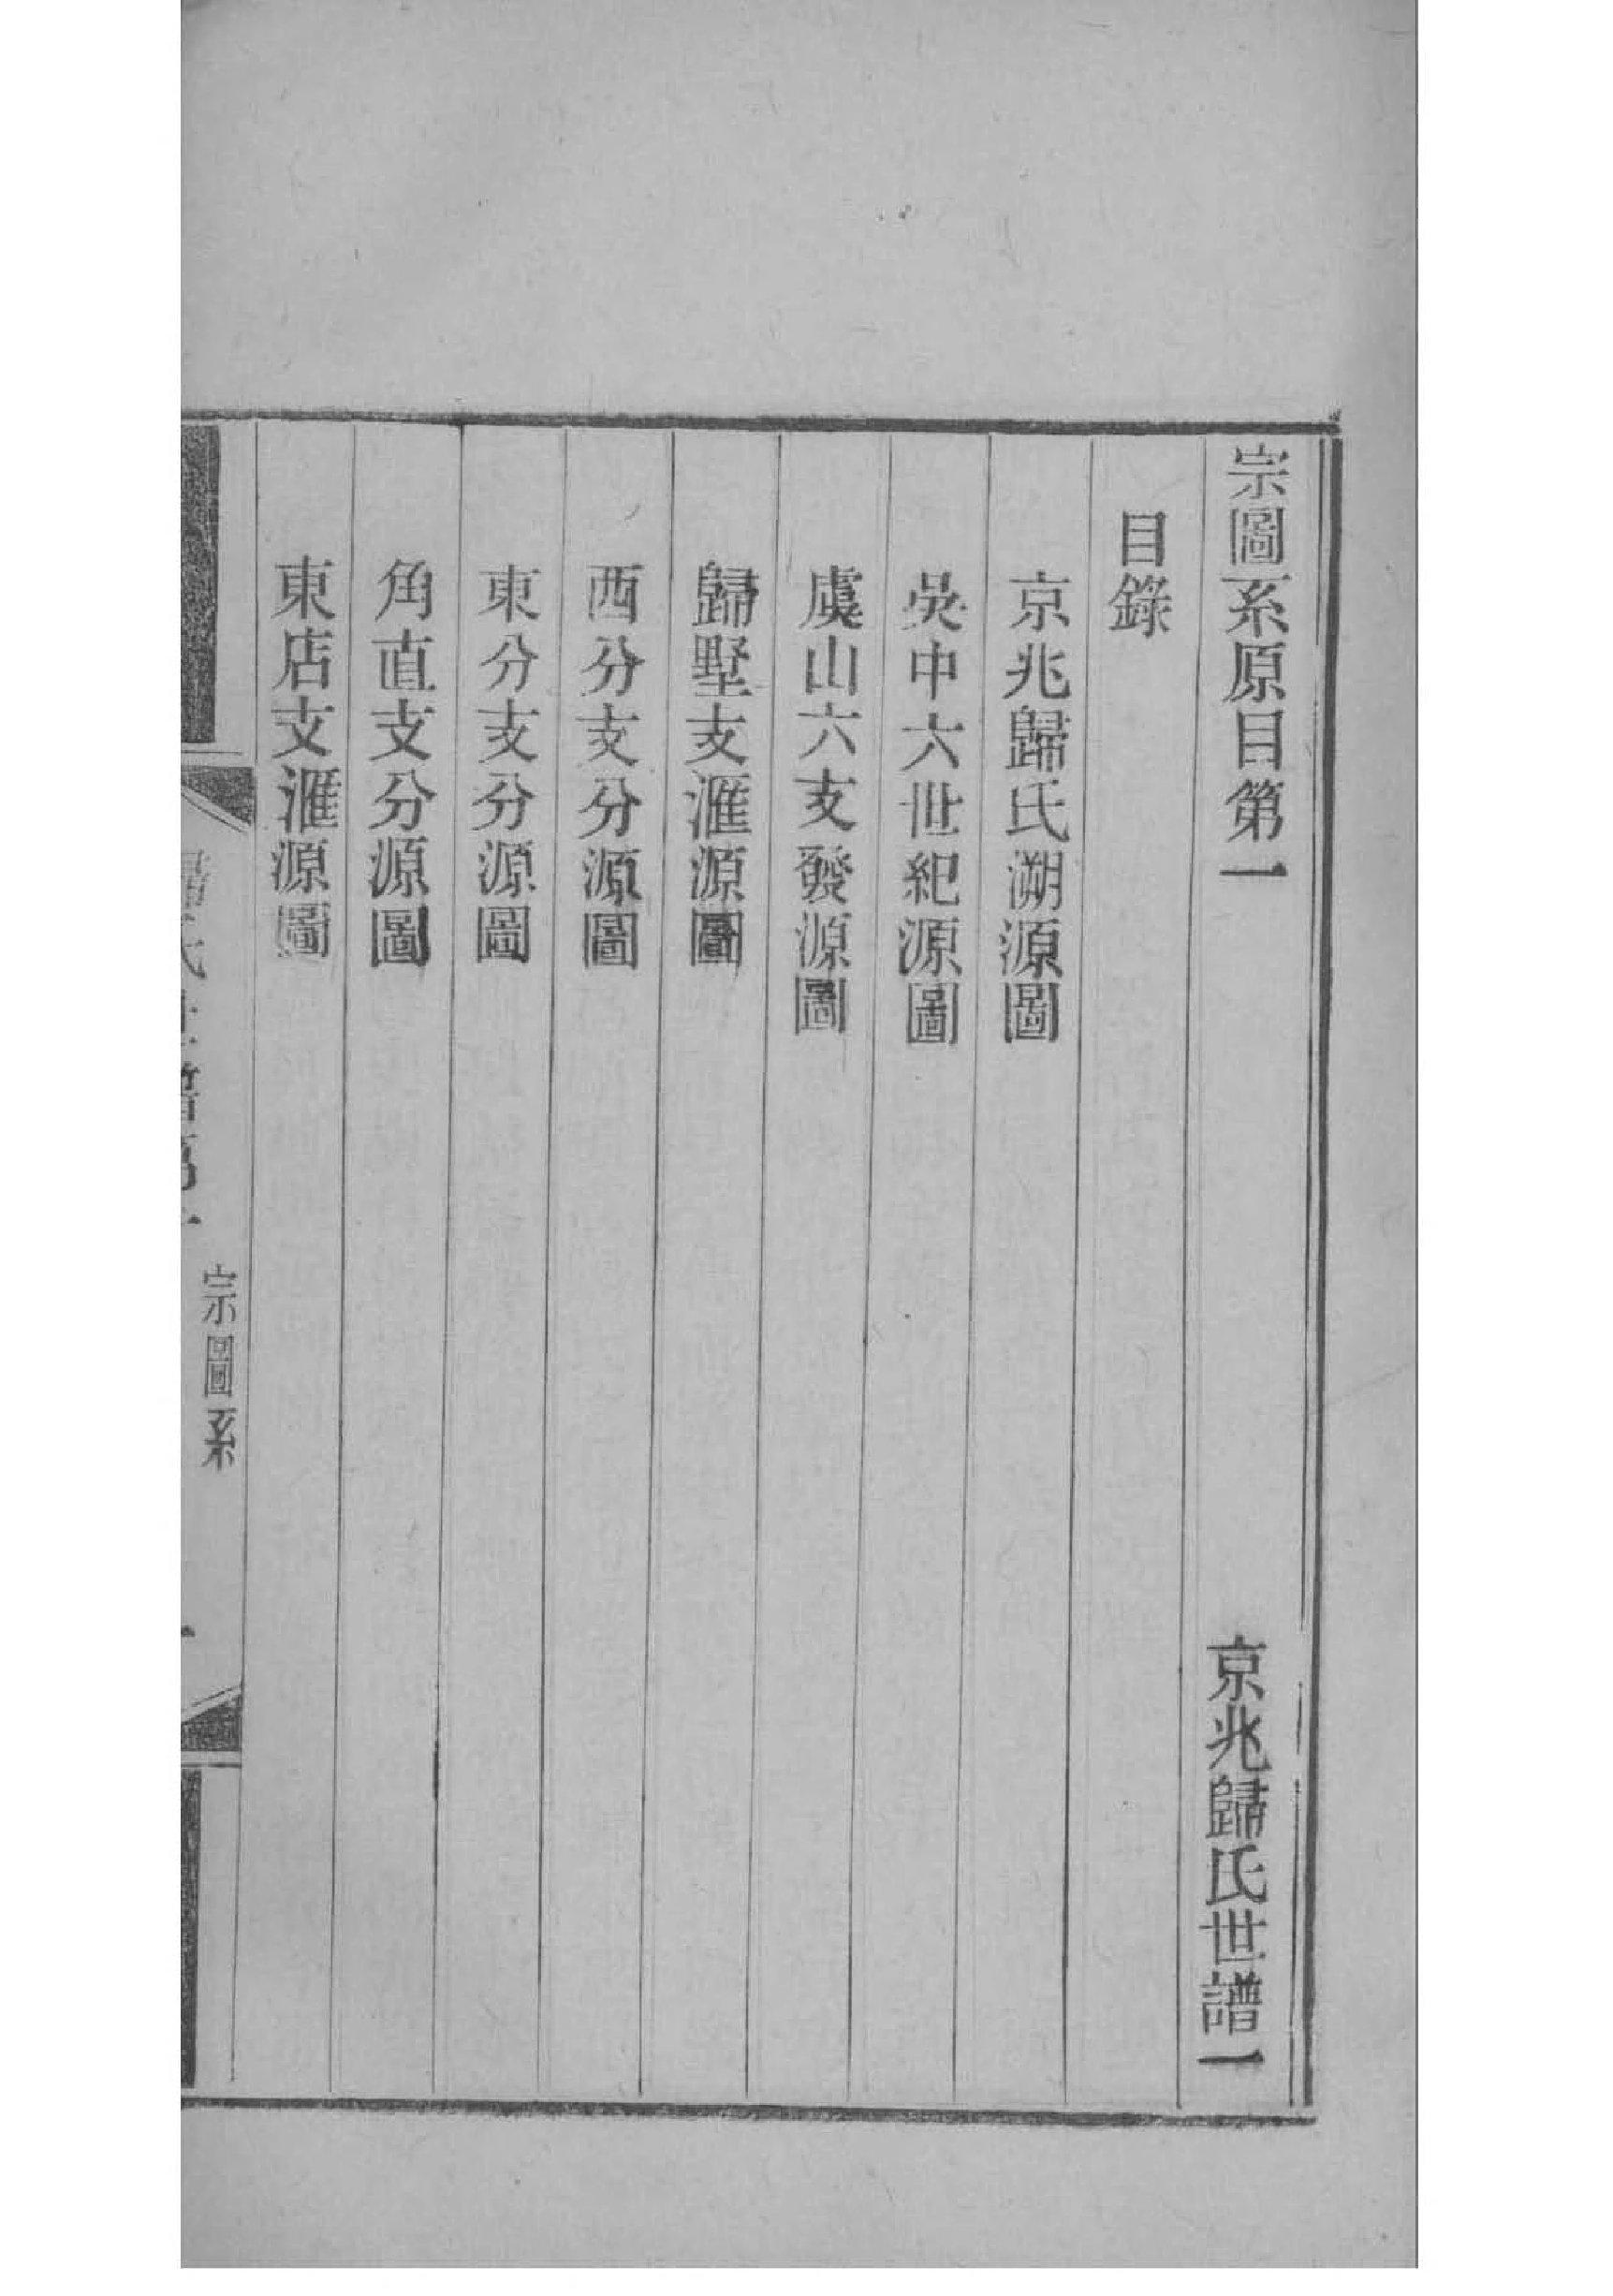 宗圖系原目第一 京兆歸氏世譜一
目錄
京兆歸氏溯源圖
吳中六世紀源圖
虞山六支發源圖
歸墅支滙源圖
西分支分源圖
東分支分源圖
角直支分源圖
東店支滙源圖
宗圖系